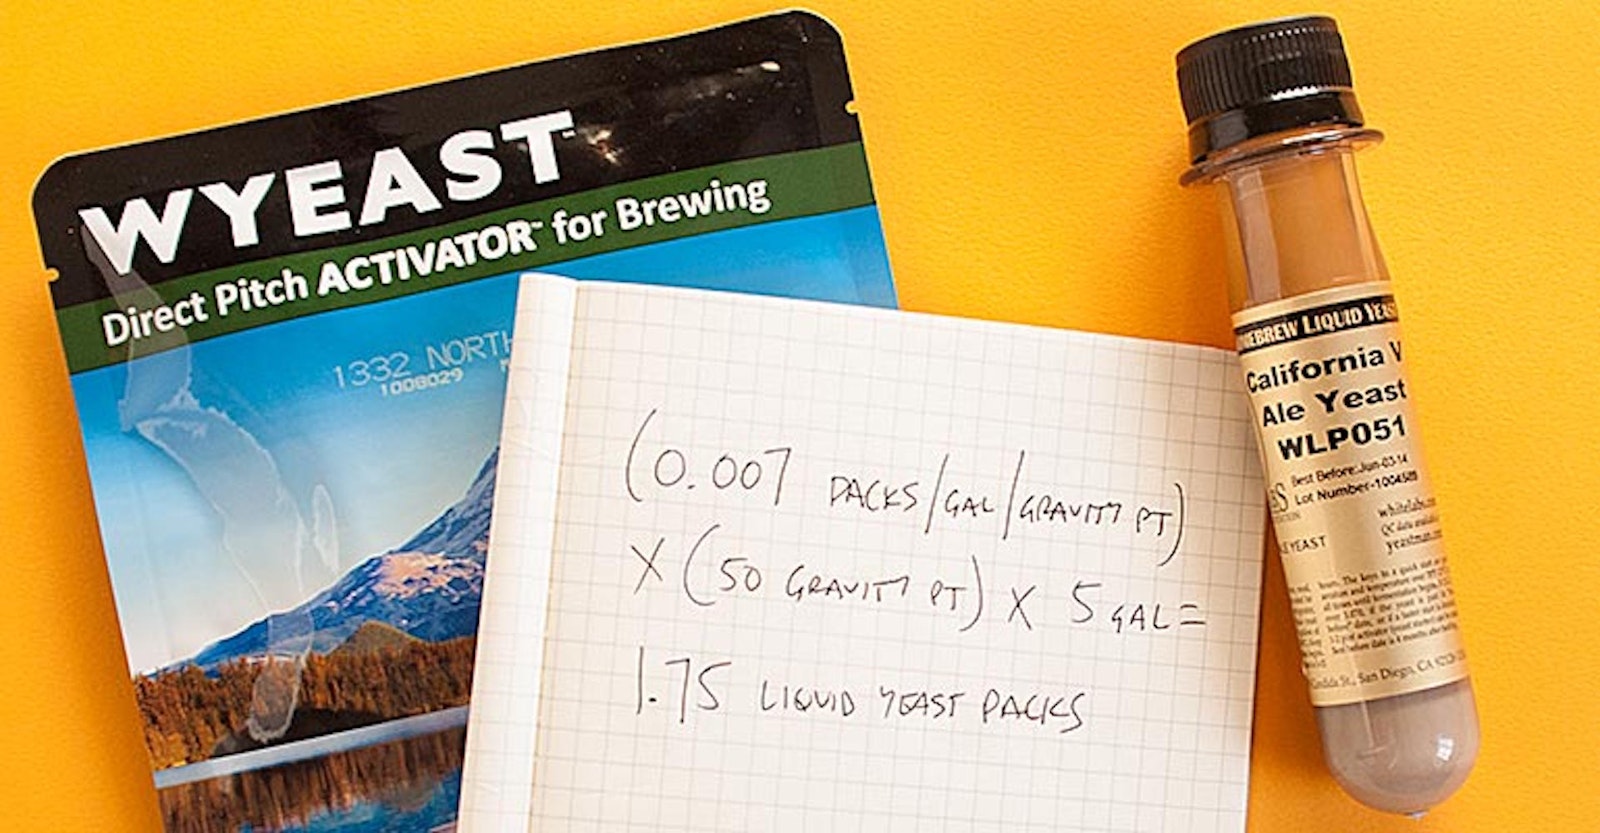 WYEAST
Direct Pitch ACTIVATOR™ for Brewing
1332 NORTH
1008029
(0.007 PACKS/GAL/GRAVITY PT)
X (50 GRAVITY PT) X 5 GAL =
1.75 LIQUID YEAST PACKS
EBREW LIQUID YEAS
California V
Ale Yeast
WLP051
Best Before:Jun-03-14
Lot Number-1004505
whitelabs.co
QC data availabl
yeastman.co
E YEAST
St., San Diego, CA